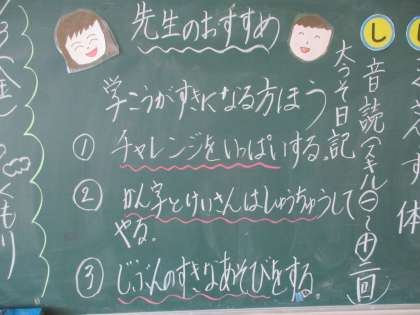 先生のおすすめ
学こうがすきになる方ほう
① チャレンジをいっぱいする。
② かん字とけいさんはしゅうちゅうして
やる。
③ じぶんのすきなあそびをする。
し
大うそ日記
音読(スキル㊀～㊉㊁回)
体
(金)
くもり